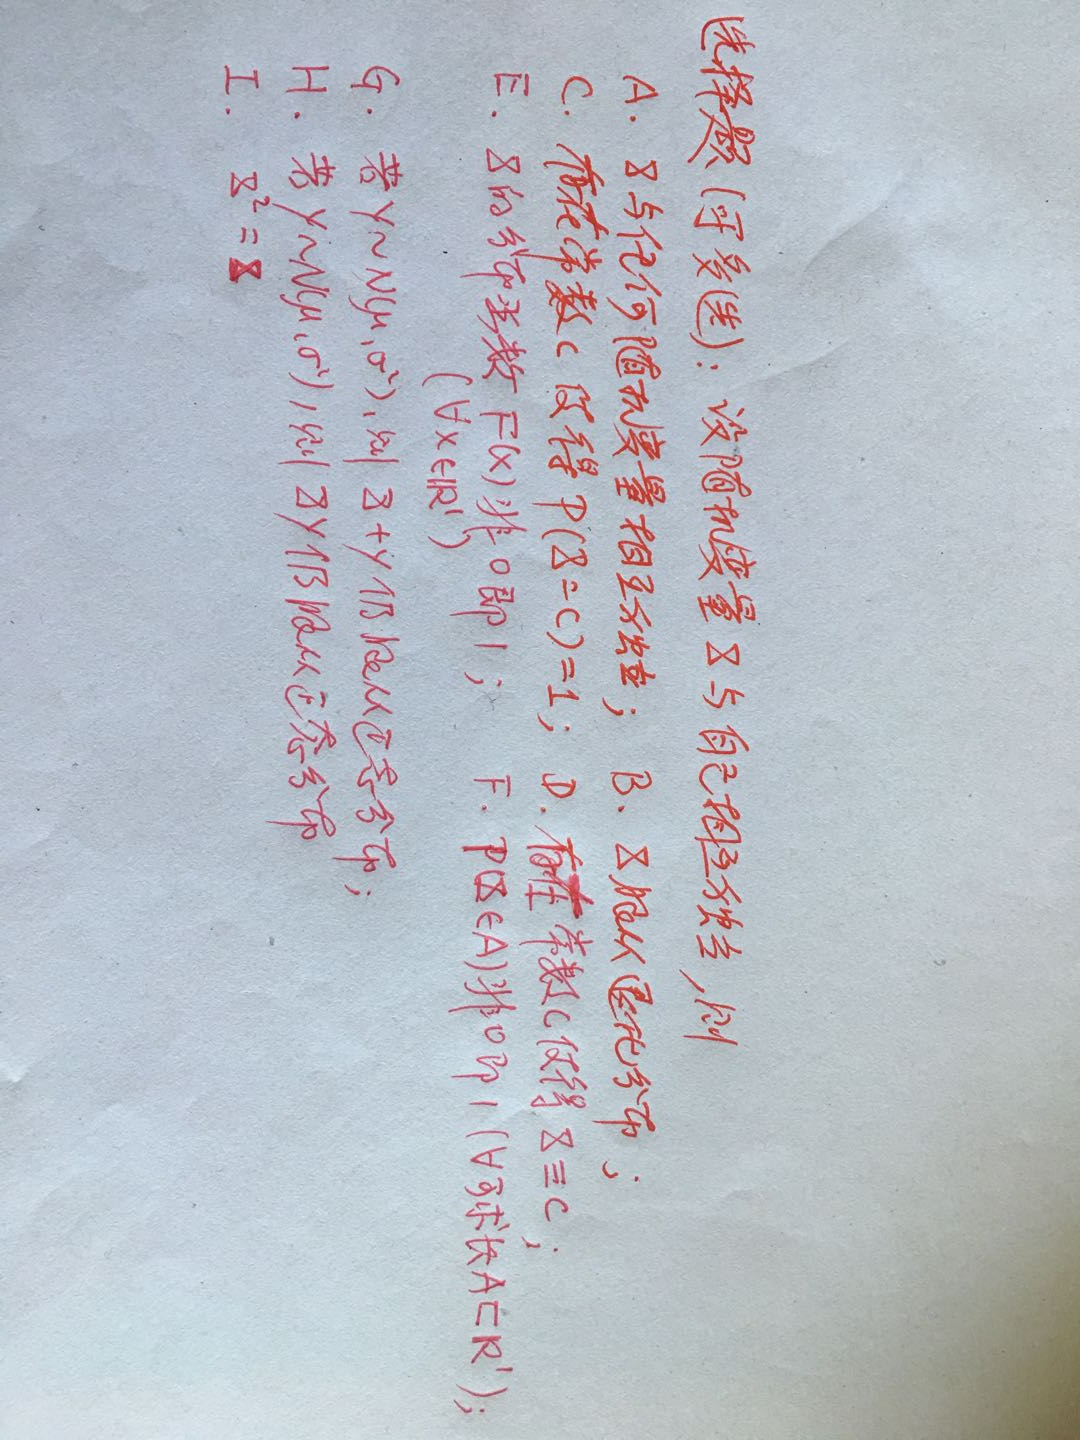 选择题(可多选): 设随机变量X与自己相互独立,则
A. X与任何随机变量相互独立; B. X服从退化分布;
C. 存在常数c使得P(X=c)=1; D. 存在常数c使得X≡c;
E. X的分布函数F(x)非0即1; F. P(X∈A)非0即1(∀可测集A⊂R¹);
(∀x∈R¹)
G. 若Y~N(μ,σ²),则X+Y仍服从正态分布;
H. 若Y~N(μ,σ²),则XY仍服从正态分布
I. X²=X